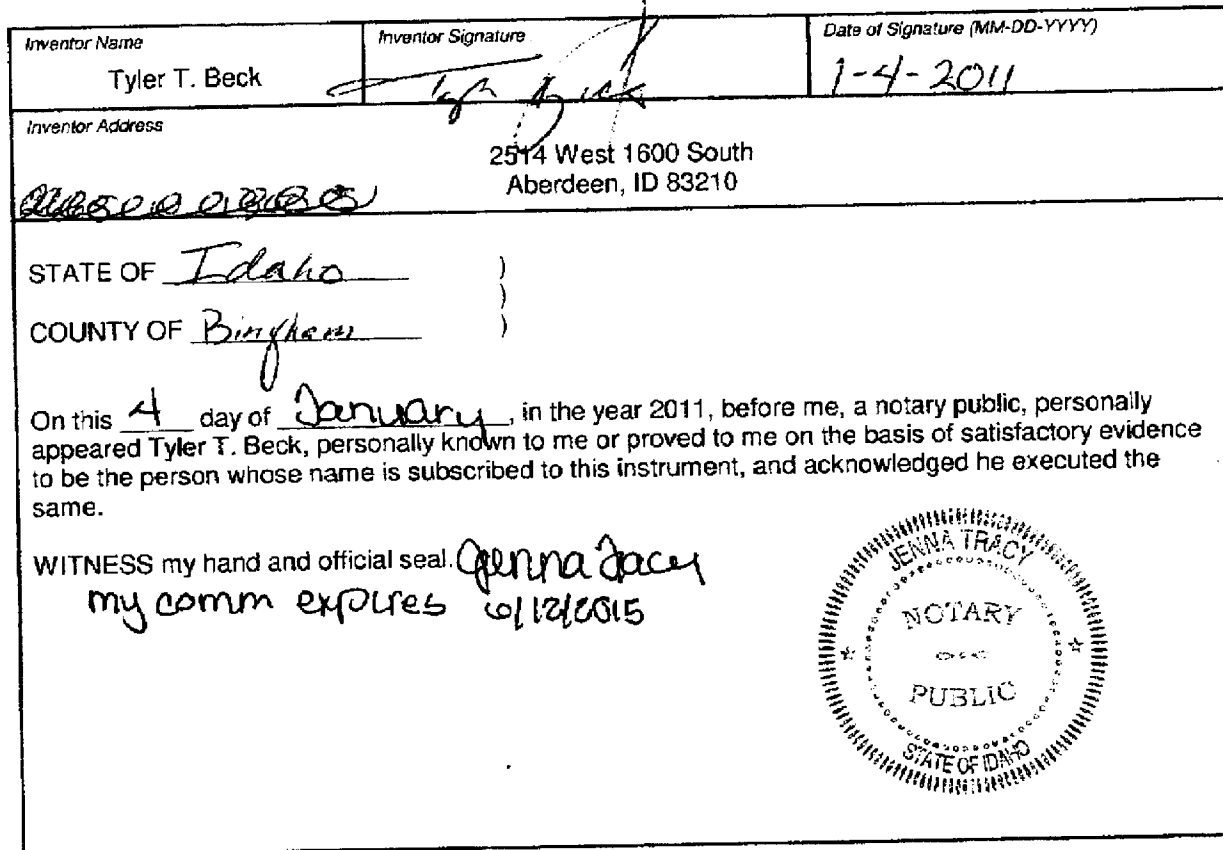 Inventor Name
Tyler T. Beck
Inventor Signature
Tyler Beck
Date of Signature (MM-DD-YYYY)
1-4-2011
Inventor Address
2514 West 1600 South
Aberdeen, ID 83210
STATE OF Idaho )
)
COUNTY OF Bingham )
On this 4 day of January, in the year 2011, before me, a notary public, personally
appeared Tyler T. Beck, personally known to me or proved to me on the basis of satisfactory evidence
to be the person whose name is subscribed to this instrument, and acknowledged he executed the
same.
WITNESS my hand and official seal. Jenna Tracy
my comm expires 6/12/2015
JENNA TRACY
NOTARY
PUBLIC
STATE OF IDAHO